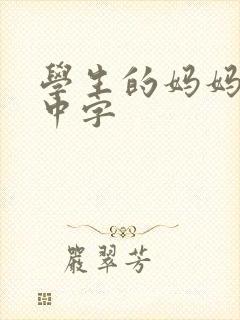 學生的妈妈
中字
嚴翠芳